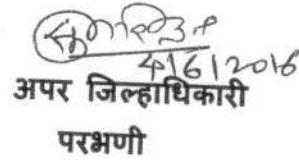 4/6/2016
अपर जिल्हाधिकारी
परभणी